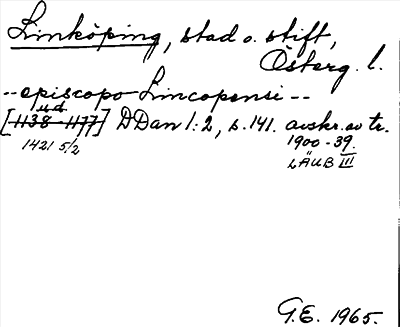 Linköping, stad o. stift,
Österg. l.
-- episcopo Lincopensi --
u.d.
[1138-1177] DDan 1:2, s. 141. avskr. av tr.
1421 5/2 1900-39.
LÄUB III
G.E. 1965.